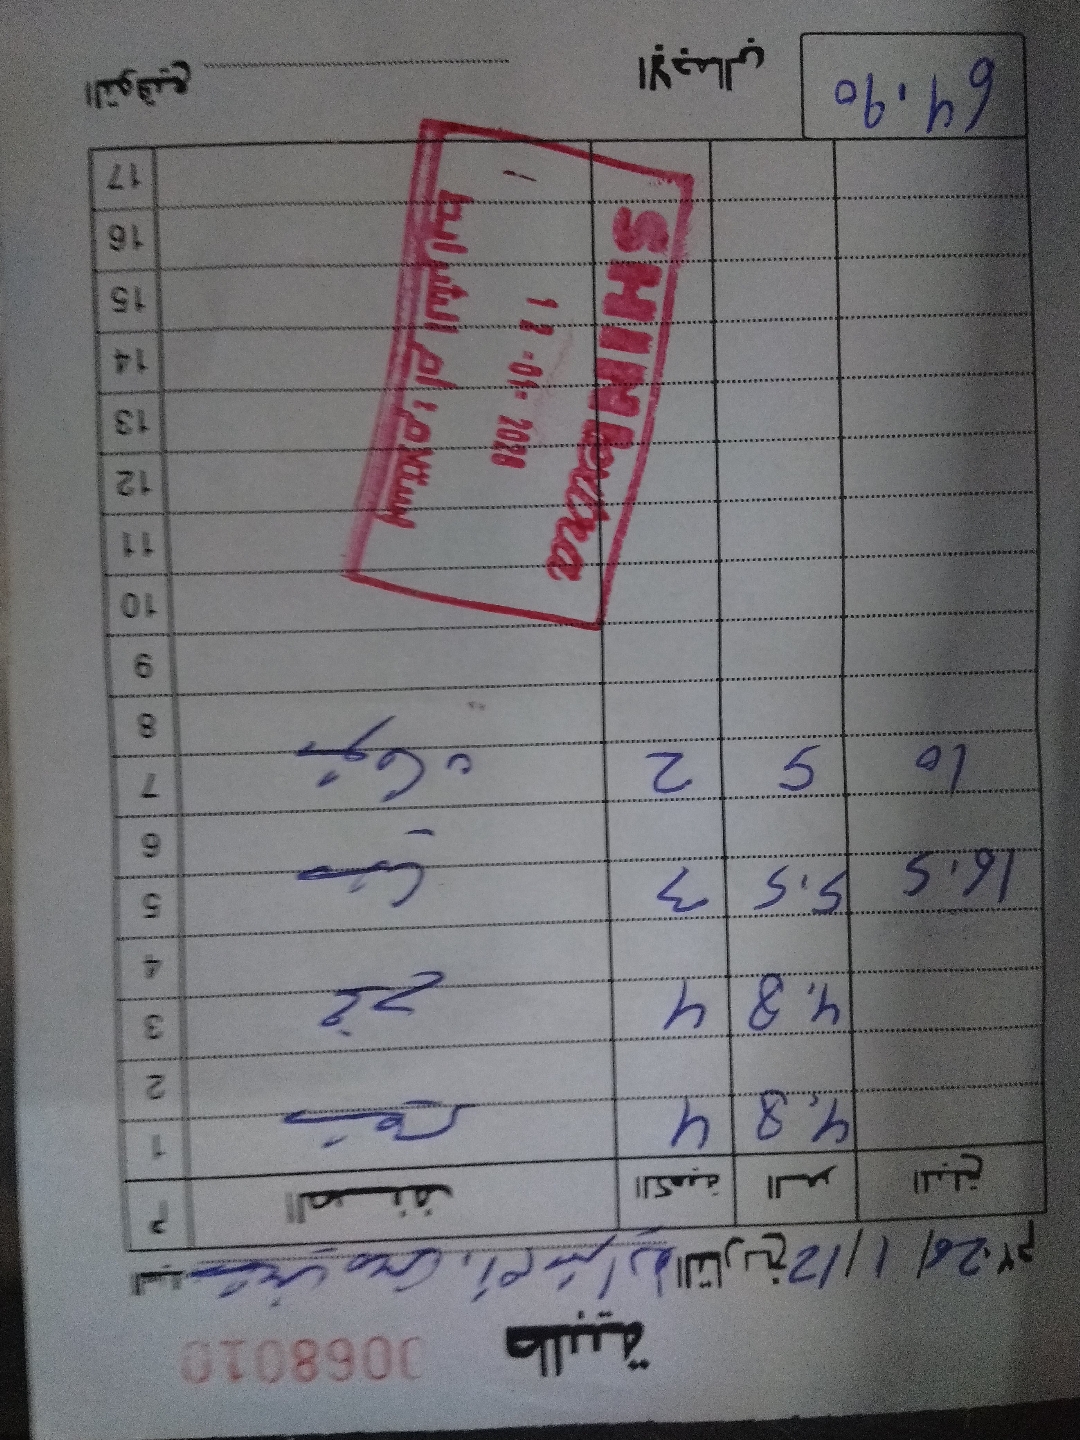 طلبية
0068010
السيد
التاريخ 12 / 1 / 2026م
م الصنف الكمية السعر المبلغ
1 4 4.8
2
3 4 4.8
4
5 3 5.5 16.5
6
7 2 5 10
8
9
10
11
12
13
14
15
16
17
SHIMA extra
12-01-2026
ستلام / ام الشرايط
64.90
الإجمالي
التوقيع